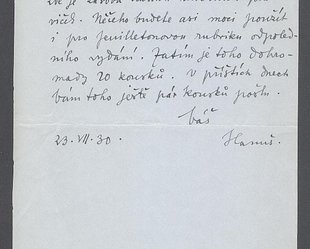 že je
říček. Něčeho budete asi moci použít
i pro feuilletonovou rubriku odpoled-
ního vydání. Zatím je toho dohro-
mady 20 kousků. V příštích dnech
Vám toho ještě pár kousků pošlu.
Váš
23. VII. 30. Hanuš.